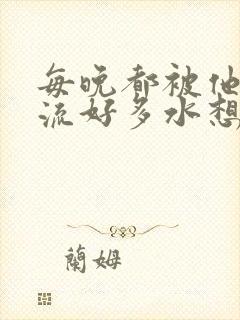 每晚都被他
流好多水想
蘭姆